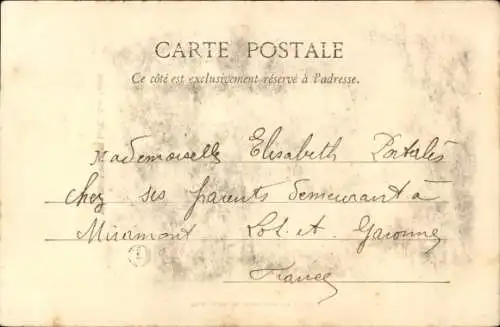 CARTE POSTALE
Ce côté est exclusivement réservé à l'adresse.
Mademoiselle Elisabeth Portalès
chez ses parents demeurant à
Miramont Lot. et. Garonne
France